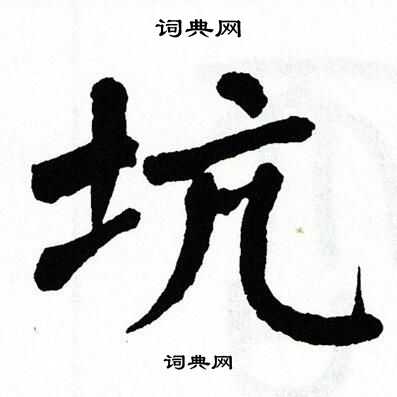 词典网
坑
词典网